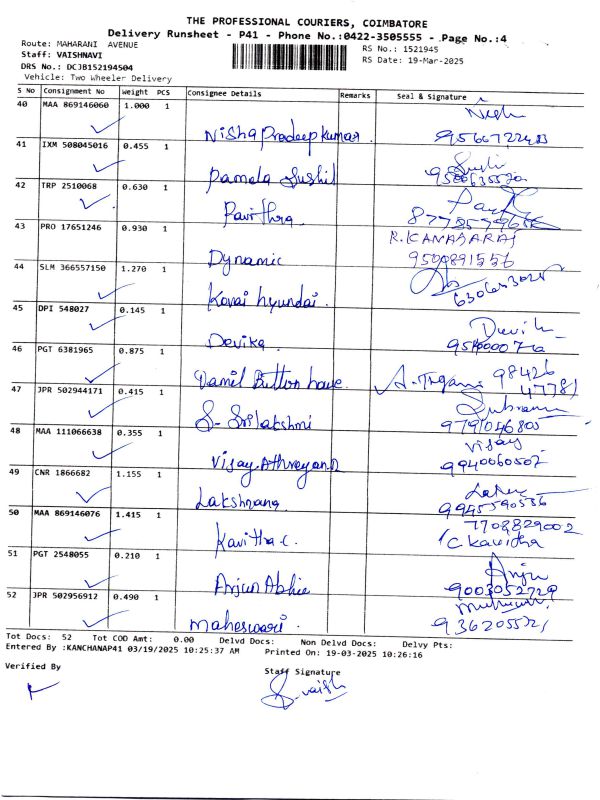 THE PROFESSIONAL COURIERS, COIMBATORE
Delivery Runsheet - P41 - Phone No.:0422-3505555 - Page No.:4
Route: MAHARANI AVENUE RS No.: 1521945
Staff: VAISHNAVI RS Date: 19-Mar-2025
DRS No.: DCJB152194504
Vehicle: Two Wheeler Delivery
S No Consignment No Weight PCS Consignee Details Remarks Seal & Signature
40 MAA 869146060 1.000 1
Nisha Pradeep kumar
41 IXM 508045016 0.455 1
Pamela Sushil
42 TRP 2510068 0.630 1
Pavithra
43 PRO 17651246 0.930 1 R.KANAGARAJ
Dynamic 9500891556
44 SLM 366557150 1.270 1
Kovai hyundai.
45 DPI 548027 0.145 1
Devika
46 PGT 6381965 0.875 1
Tamil Button house 98426
47781
47 JPR 502944171 0.415 1
S. Srilakshmi 9791046805
48 MAA 111066638 0.355 1 Vijay
Vijay Athreyan 9940060507
49 CNR 1866682 1.155 1
Lakshnana 9945590536
50 MAA 869146076 1.415 1 7708829002
Kavitha.c. C Kavitha
51 PGT 2548055 0.210 1 Anju
Anjun Abhie 9003052729
52 JPR 502956912 0.490 1
Maheswari.
Tot Docs: 52 Tot COD Amt: 0.00 Delvd Docs: Non Delvd Docs: Delvy Pts:
Entered By :KANCHANAP41 03/19/2025 10:25:37 AM Printed On: 19-03-2025 10:26:16
Verified By Staff Signature
S. vaish